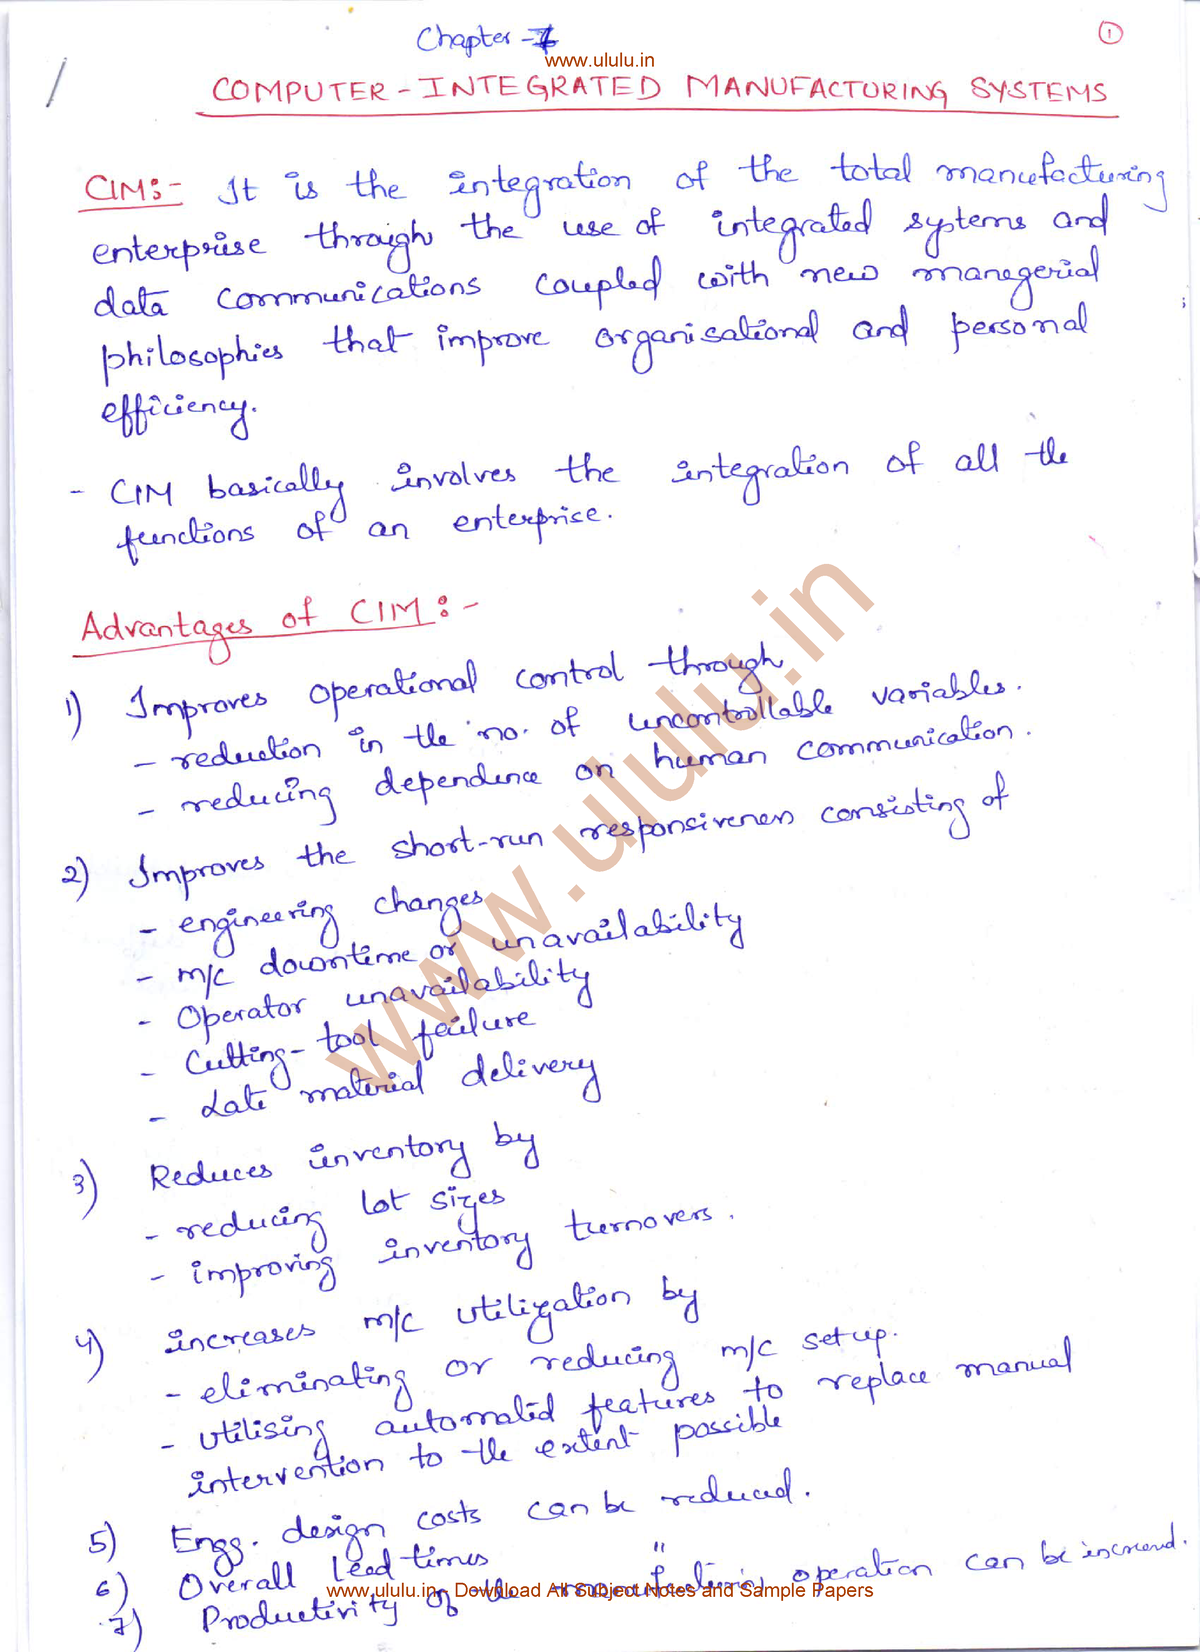 Chapter - 7
①
www.ululu.in
COMPUTER - INTEGRATED MANUFACTURING SYSTEMS
CIM:- It is the integration of the total manufacturing
enterprise through the use of integrated systems and
data communications coupled with new manegerial
philosophies that improve organisational and personal
efficiency.
- CIM basically involves the integration of all the
functions of an enterprise.
Advantages of CIM:-
1) Improves operational control through
- reduction in the no. of uncontrollable variables.
- reducing dependence on human communication.
2) Improves the short-run responsiveness consisting of
- engineering changes
- m/c downtime or unavailability
- Operator unavailability
- Cutting-tool failure
- Late material delivery
3) Reduces inventory by
- reducing lot sizes
- improving inventory turnovers.
4) increases m/c utilization by
- eliminating or reducing m/c setup.
- utilising automated features to replace manual
intervention to the extent possible
5) Engg. design costs can be reduced.
6) Overall lead-times "
7) Productivity of the manufacturing operation can be increased.
www.ululu.in
www.ululu.in - Download All Subject Notes and Sample Papers